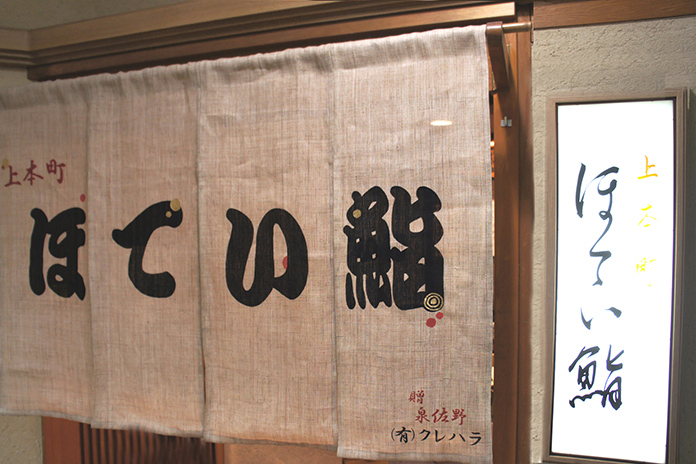 上本町
ほてい鮨
贈
泉佐野
(有)クレハラ
上本町
ほてい鮨